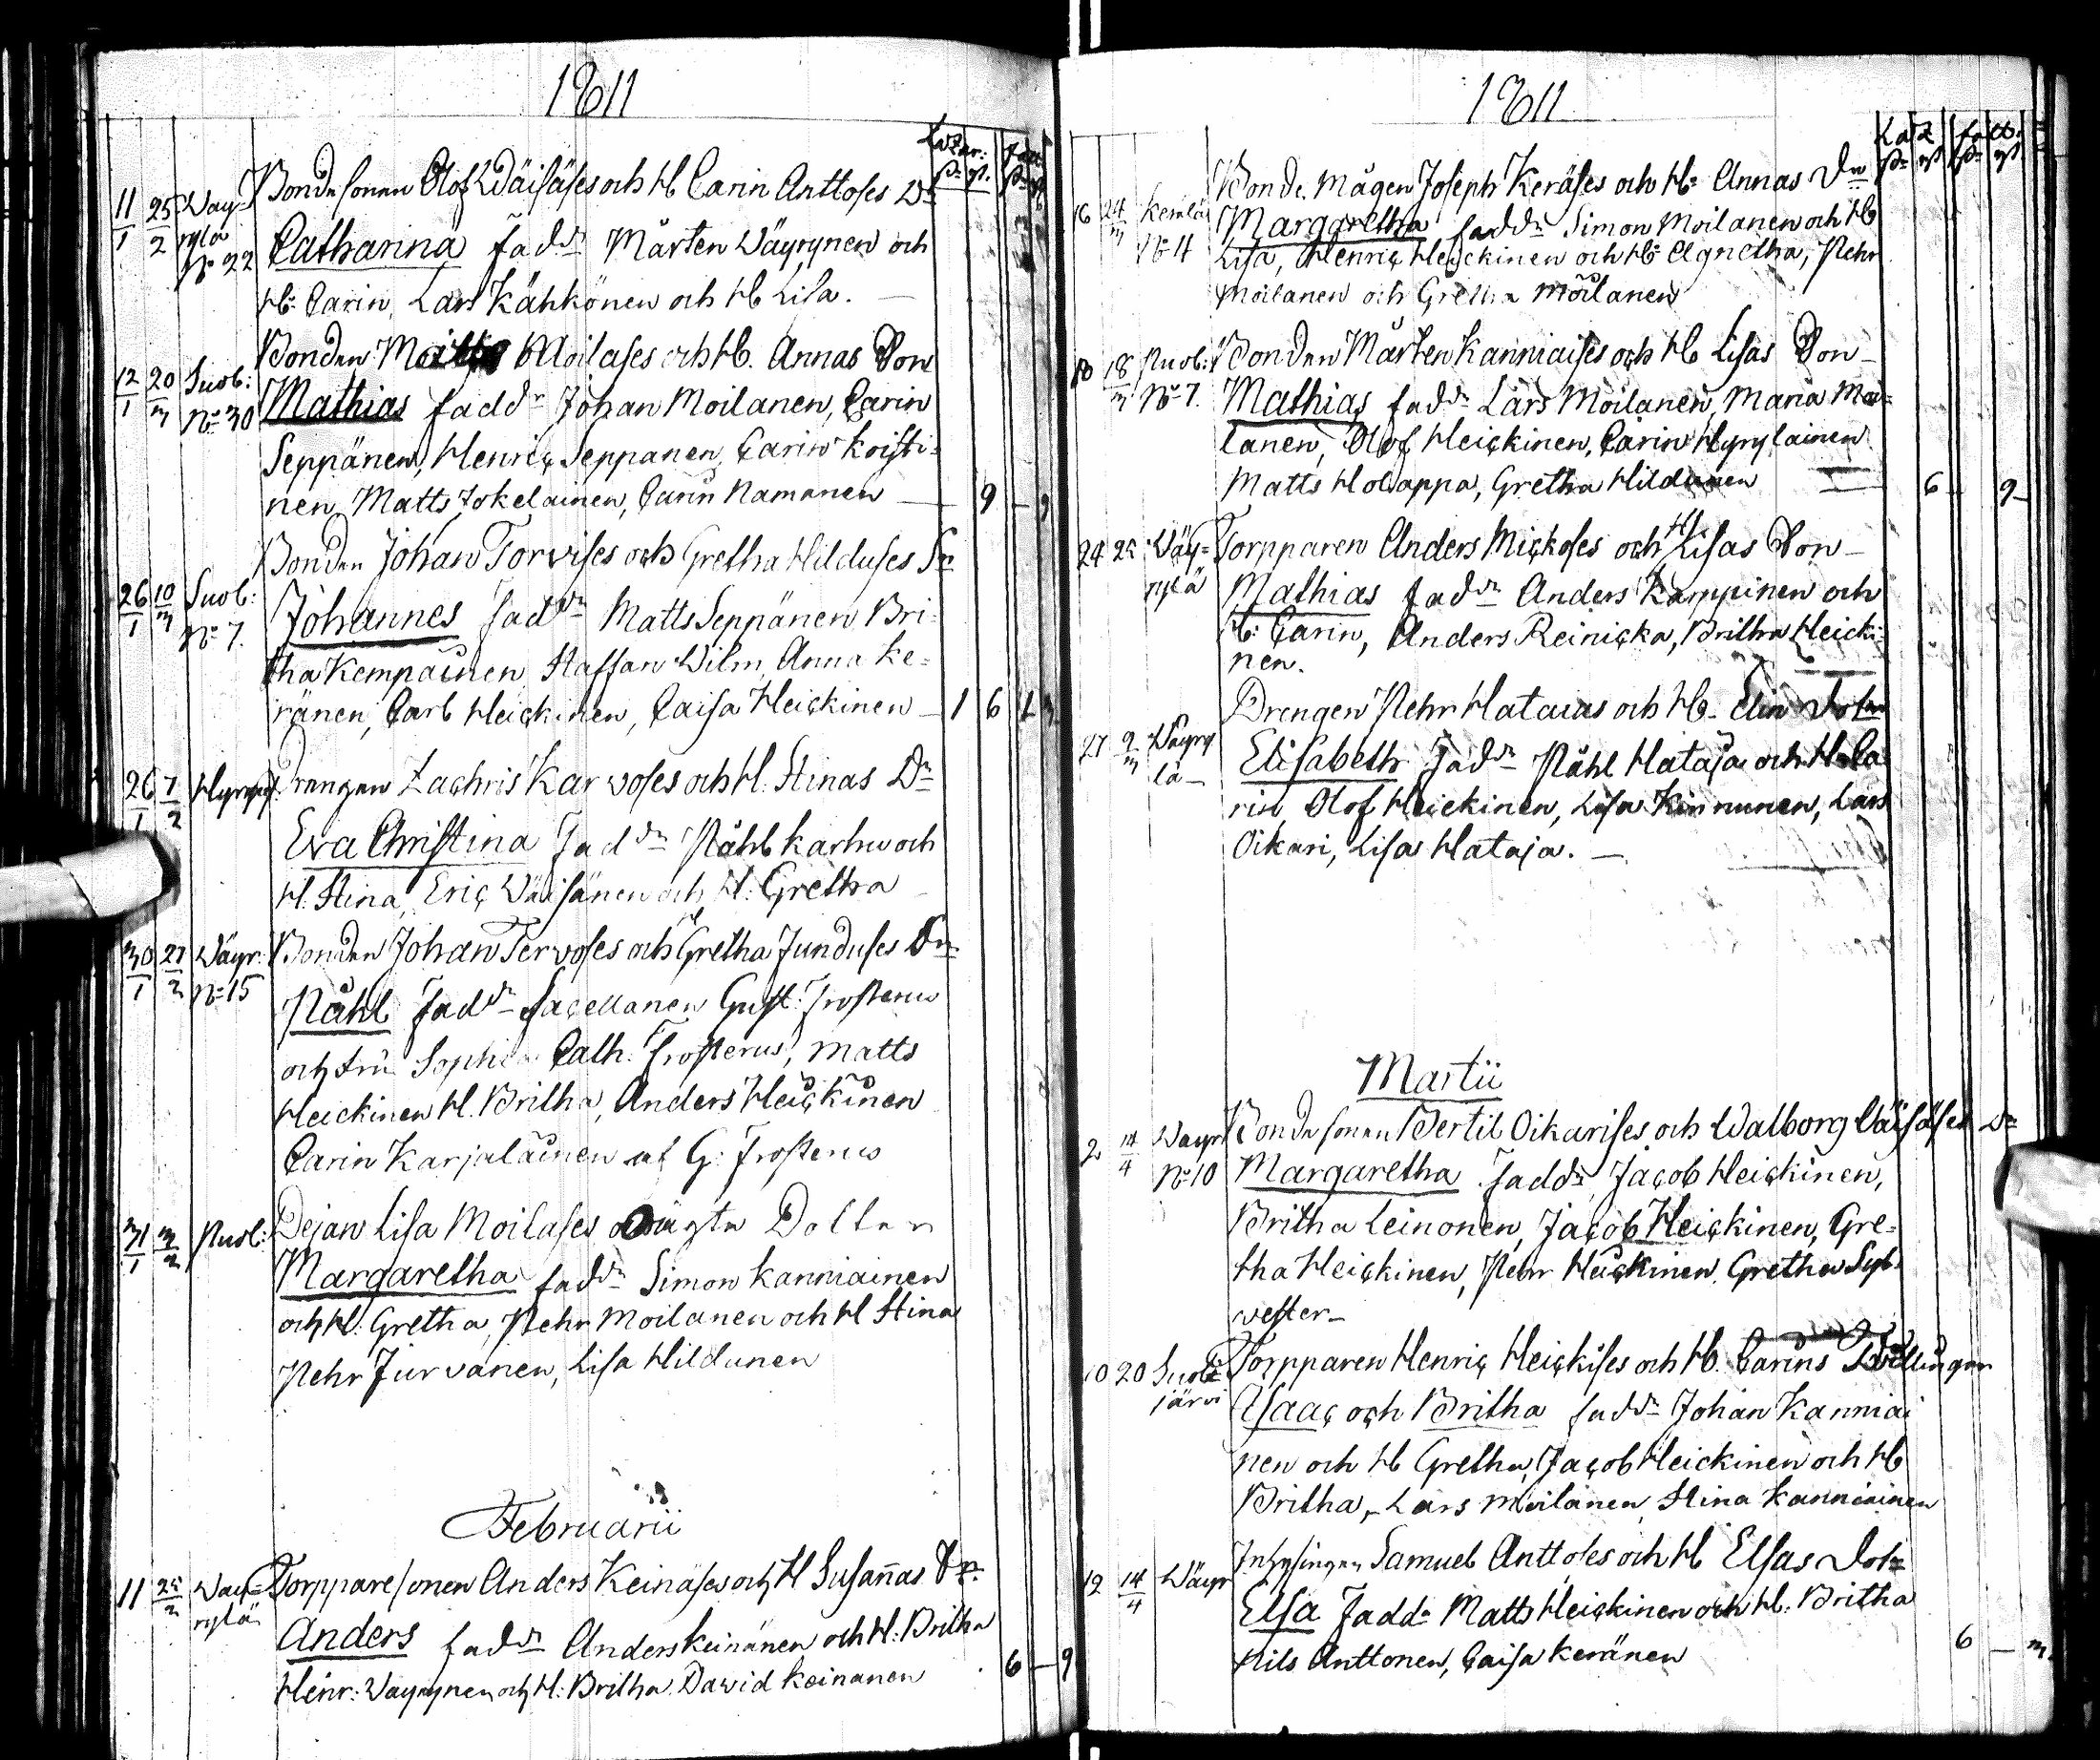 1811
Lazar:
11/1 25/2 Wäy= Bonde sonen Olof Wäisäses och H Carin Anttoses Dr
rylä Catharina fadd:r Mårten Wäyrynen och
No 22
H: Carin, Lars Kähkönen och H Lisa. —
Bonden Moilases och H. Annas Son
12/1 20/3 Suob: Mathias fadd:r Johan Moilanen, Carin
No 30
Seppänen, Henric Seppanen, Carin Koisti=
nen, Matts Jokelainen, Carin Hamanen — 9 — 9
Bonden Johan Torvises och Gretha Hilduses Sn
26/1 10/3 Suob: Johannes fadd:r Matts Seppänen Bri=
No 7.
tha Kempainen, Staffan Wilm, Anna Ke=
ränen, Carl Heickinen, Caisa Heickinen — 1 6
26/1 7/2 Drengen Zachris Karwoses och H. Stinas Dr
Eva Christina Fadd:r Påhl Karhu och
H. Stina, Eric Wäisänen och H: Gretha
30/1 27/2 Wäyr: Bonden Johan Tervoses och H Gretha Junduses Sn
No 15
Påhl Fadd:r Sacellanen Gust: Frosterus
och fru Sophia Cath. Frosterus, Matts
Heickinen H. Britha, Anders Heickinen
Carin Karjalainen af G: Frosterus
31/1 3/2 Dejan Lisa Moilases oächta Dotter
Margaretha fadd:r Simon Kanniainen
och H: Gretha, Pehr Moilanen och H Stina
Pehr Jurvanen, Lisa Hildunen
Februarii
11 25/2 Wäy= Torppare sonen Anders Keinäses och H Susannas Sn
rylä
Anders fadd:r Anders Keinänen och H: Britha
Heinr: Wäyrynen och H: Britha. David Keinanen 6 — 9
1811
Bonde mågen Joseph Keräses och H: Annas Dr
16 24/3 Kerälä Margaretha fadd:r Simon Moilanen och H
No 4 Lisa, Henric Heickinen och H: Agnetha, Pehr
Moilanen och Gretha Moilanen
18 18/3 Puol: Bonden Mårten Kanniaises och H Lisas Son
No 7. Mathias fadd:r Lars Moilanen, Maria Moi=
lanen, Olof Heickinen, Carin Hyrylainen
Matts Holappa, Gretha Hildunen — 6 9
24 25 Wäy= Torpparen Anders Mickoses och H Lisas Son
rylä Mathias fadd:r Anders Kamppinen och
H: Carin, Anders Reinicka, Britha Heicki=
nen.
Drengen Pehr Hatajas och H. Elin
27 9/3 Wäyry
lä — Elisabeth Fadd:r Påhl Hataja och H Ca
rin, Olof Heickinen, Lisa Kinnunen, Lars
Oikari, Lisa Hataja. —
Martii
2 14/4 Wäyr Bonde sonen Bertil Oikarises och Walborg Wäisäses Dr
No 10 Margaretha Fadd:r Jacob Heickinen,
Britha Leinonen, Jacob Heickinen, Gre=
tha Heickinen, Pehr Heickinen, Gretha Syl=
vester —
10 20 Suol= Torpparen Henric Heickises och H. Carins Twillingar
järvi Isaac och Britha fadd:r Johan Kanniai
nen och H Gretha, Jacob Heickinen och H
Britha, Lars Moilanen, Stina Kanniainen
Inhysingen Samuel Anttoses och H Elsas Dotr
12 14/4 Wäyr Elsa Fadd:r Matts Heickinen och H: Britha
Nils Anttonen, Caisa Keränen 6 — 3